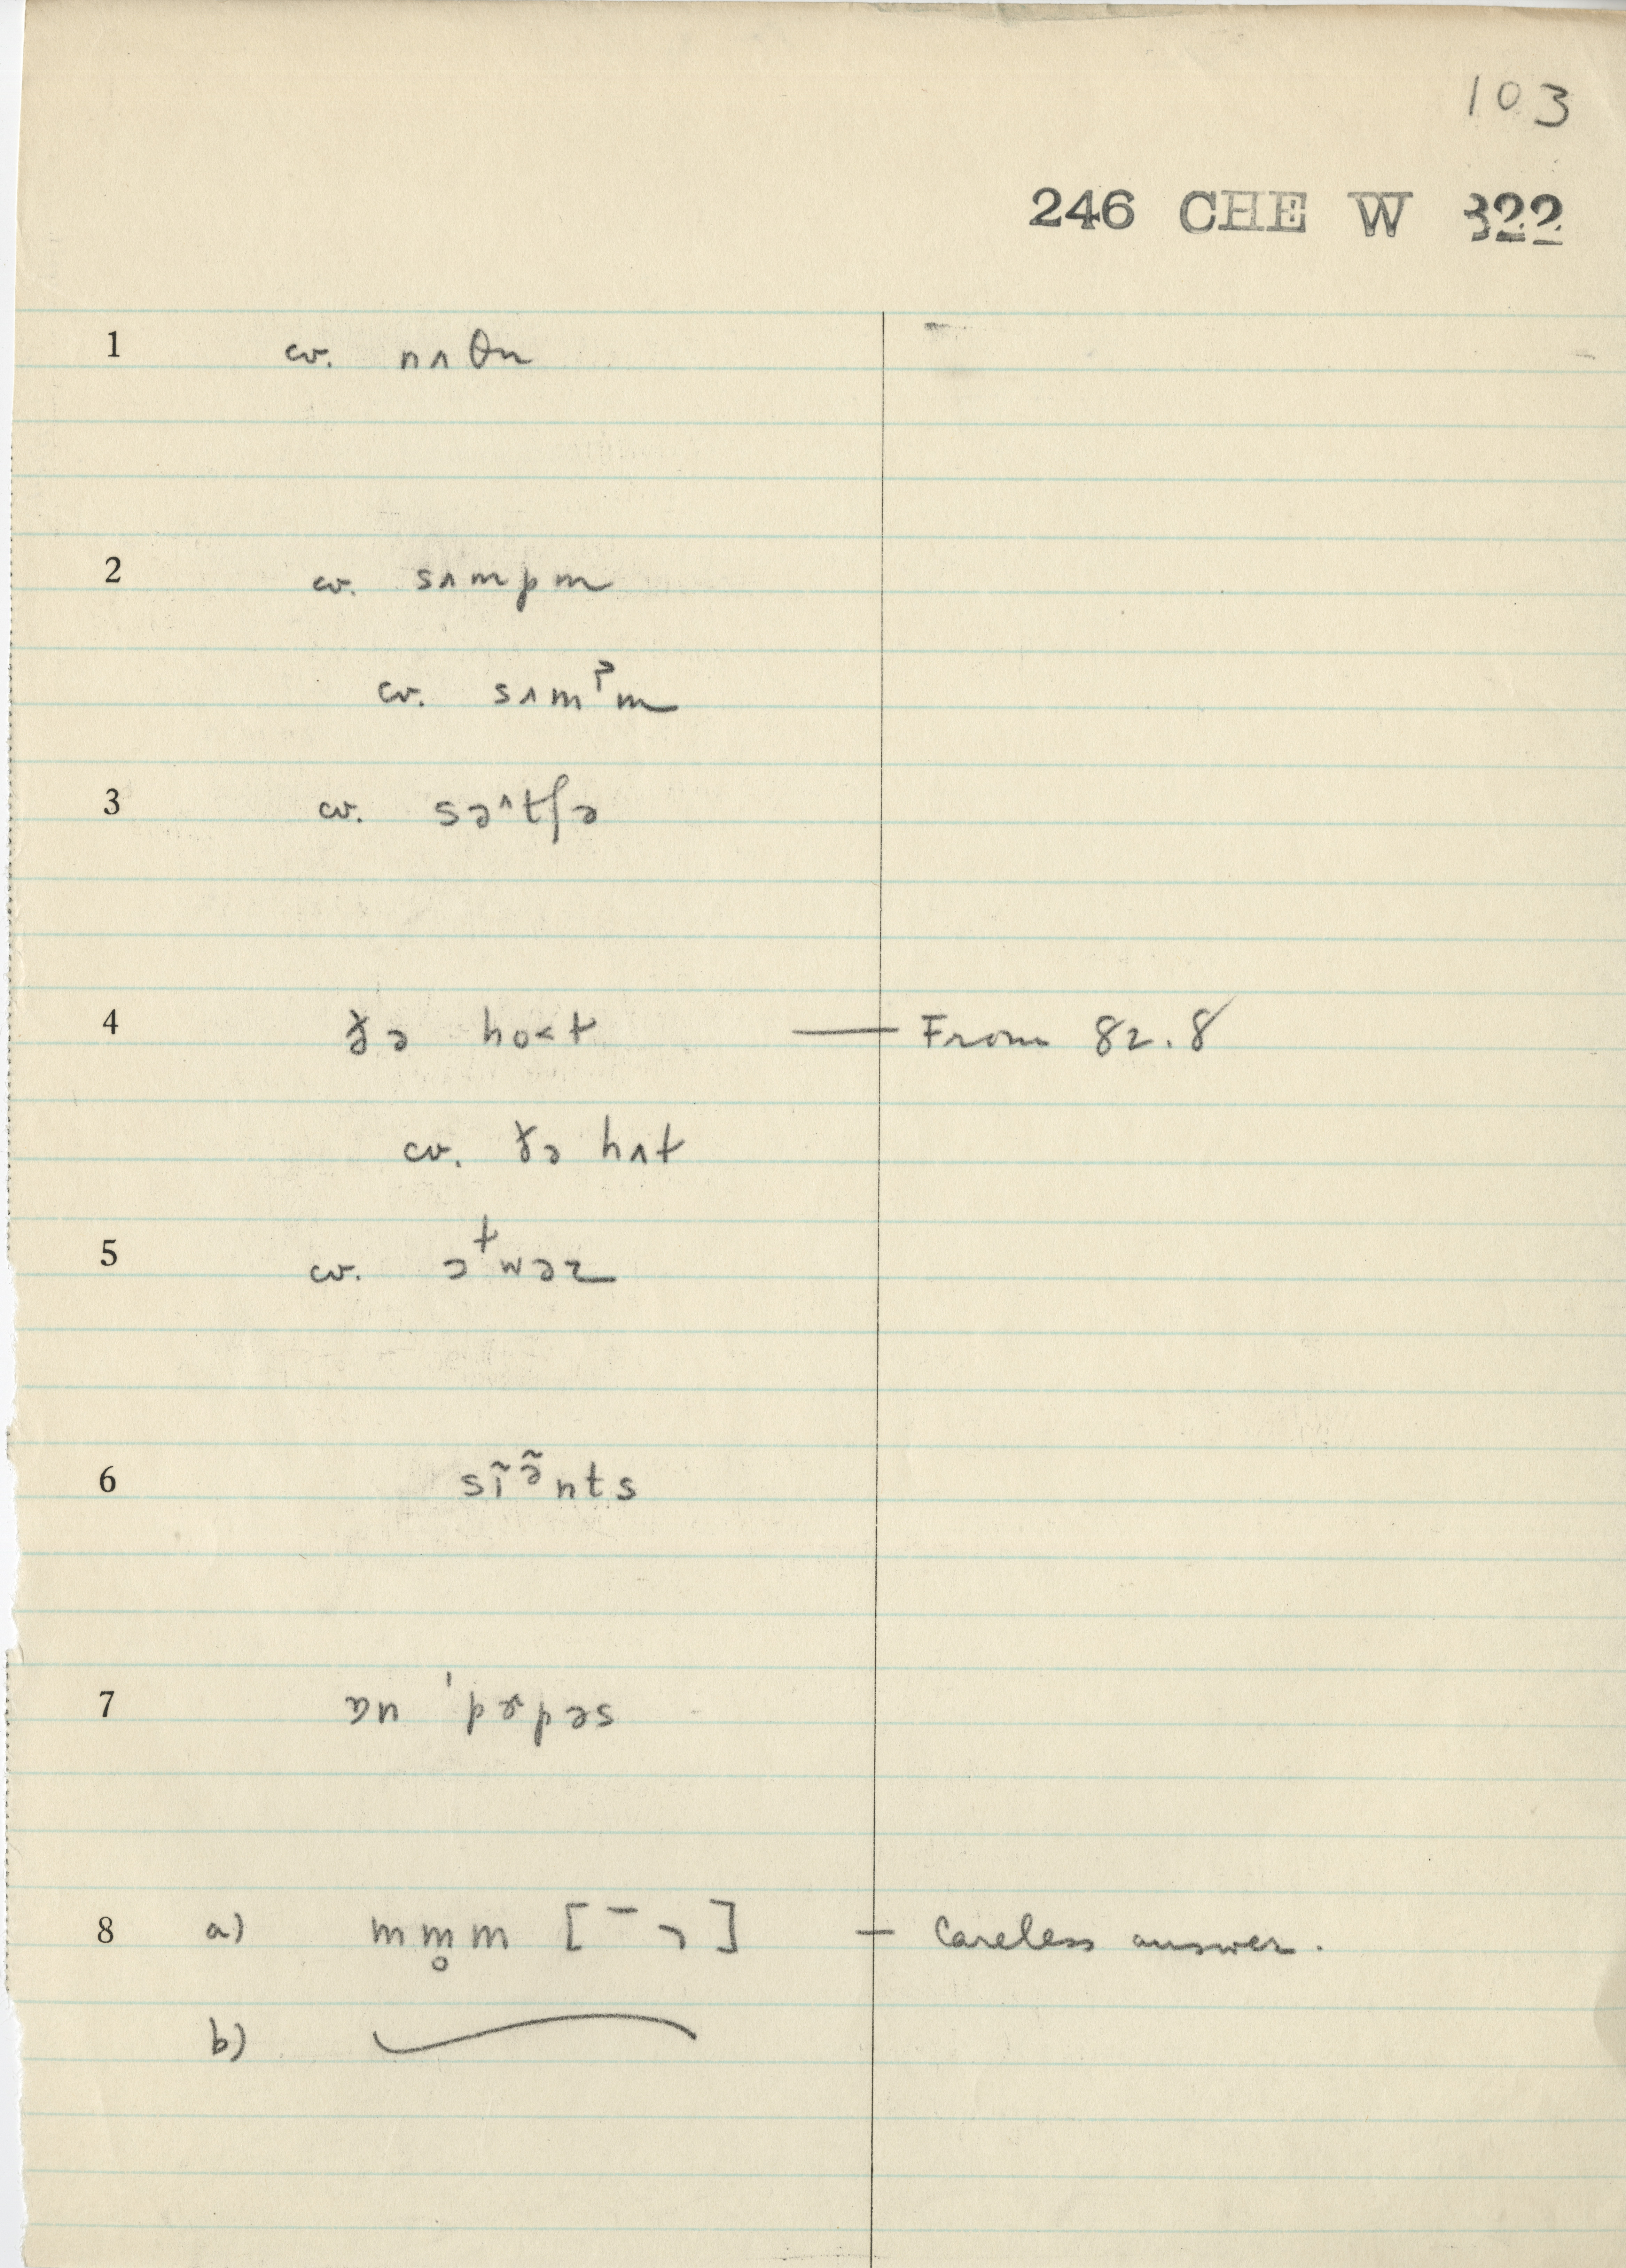 103
246 CHE W 322
1 cv. nʌθn
2 cv. sʌmpm
cv. sʌmᵖm
3 cv. sə^tʃə
4 ðə ho<t — From 82.8
cv. ðə hʌt
5 cv. əᵗwəz
6 sĩə̃nts
7 ɒn 'pɚpəs
8 a) mm̥m [¯ ¬] — Careless answer.
b)